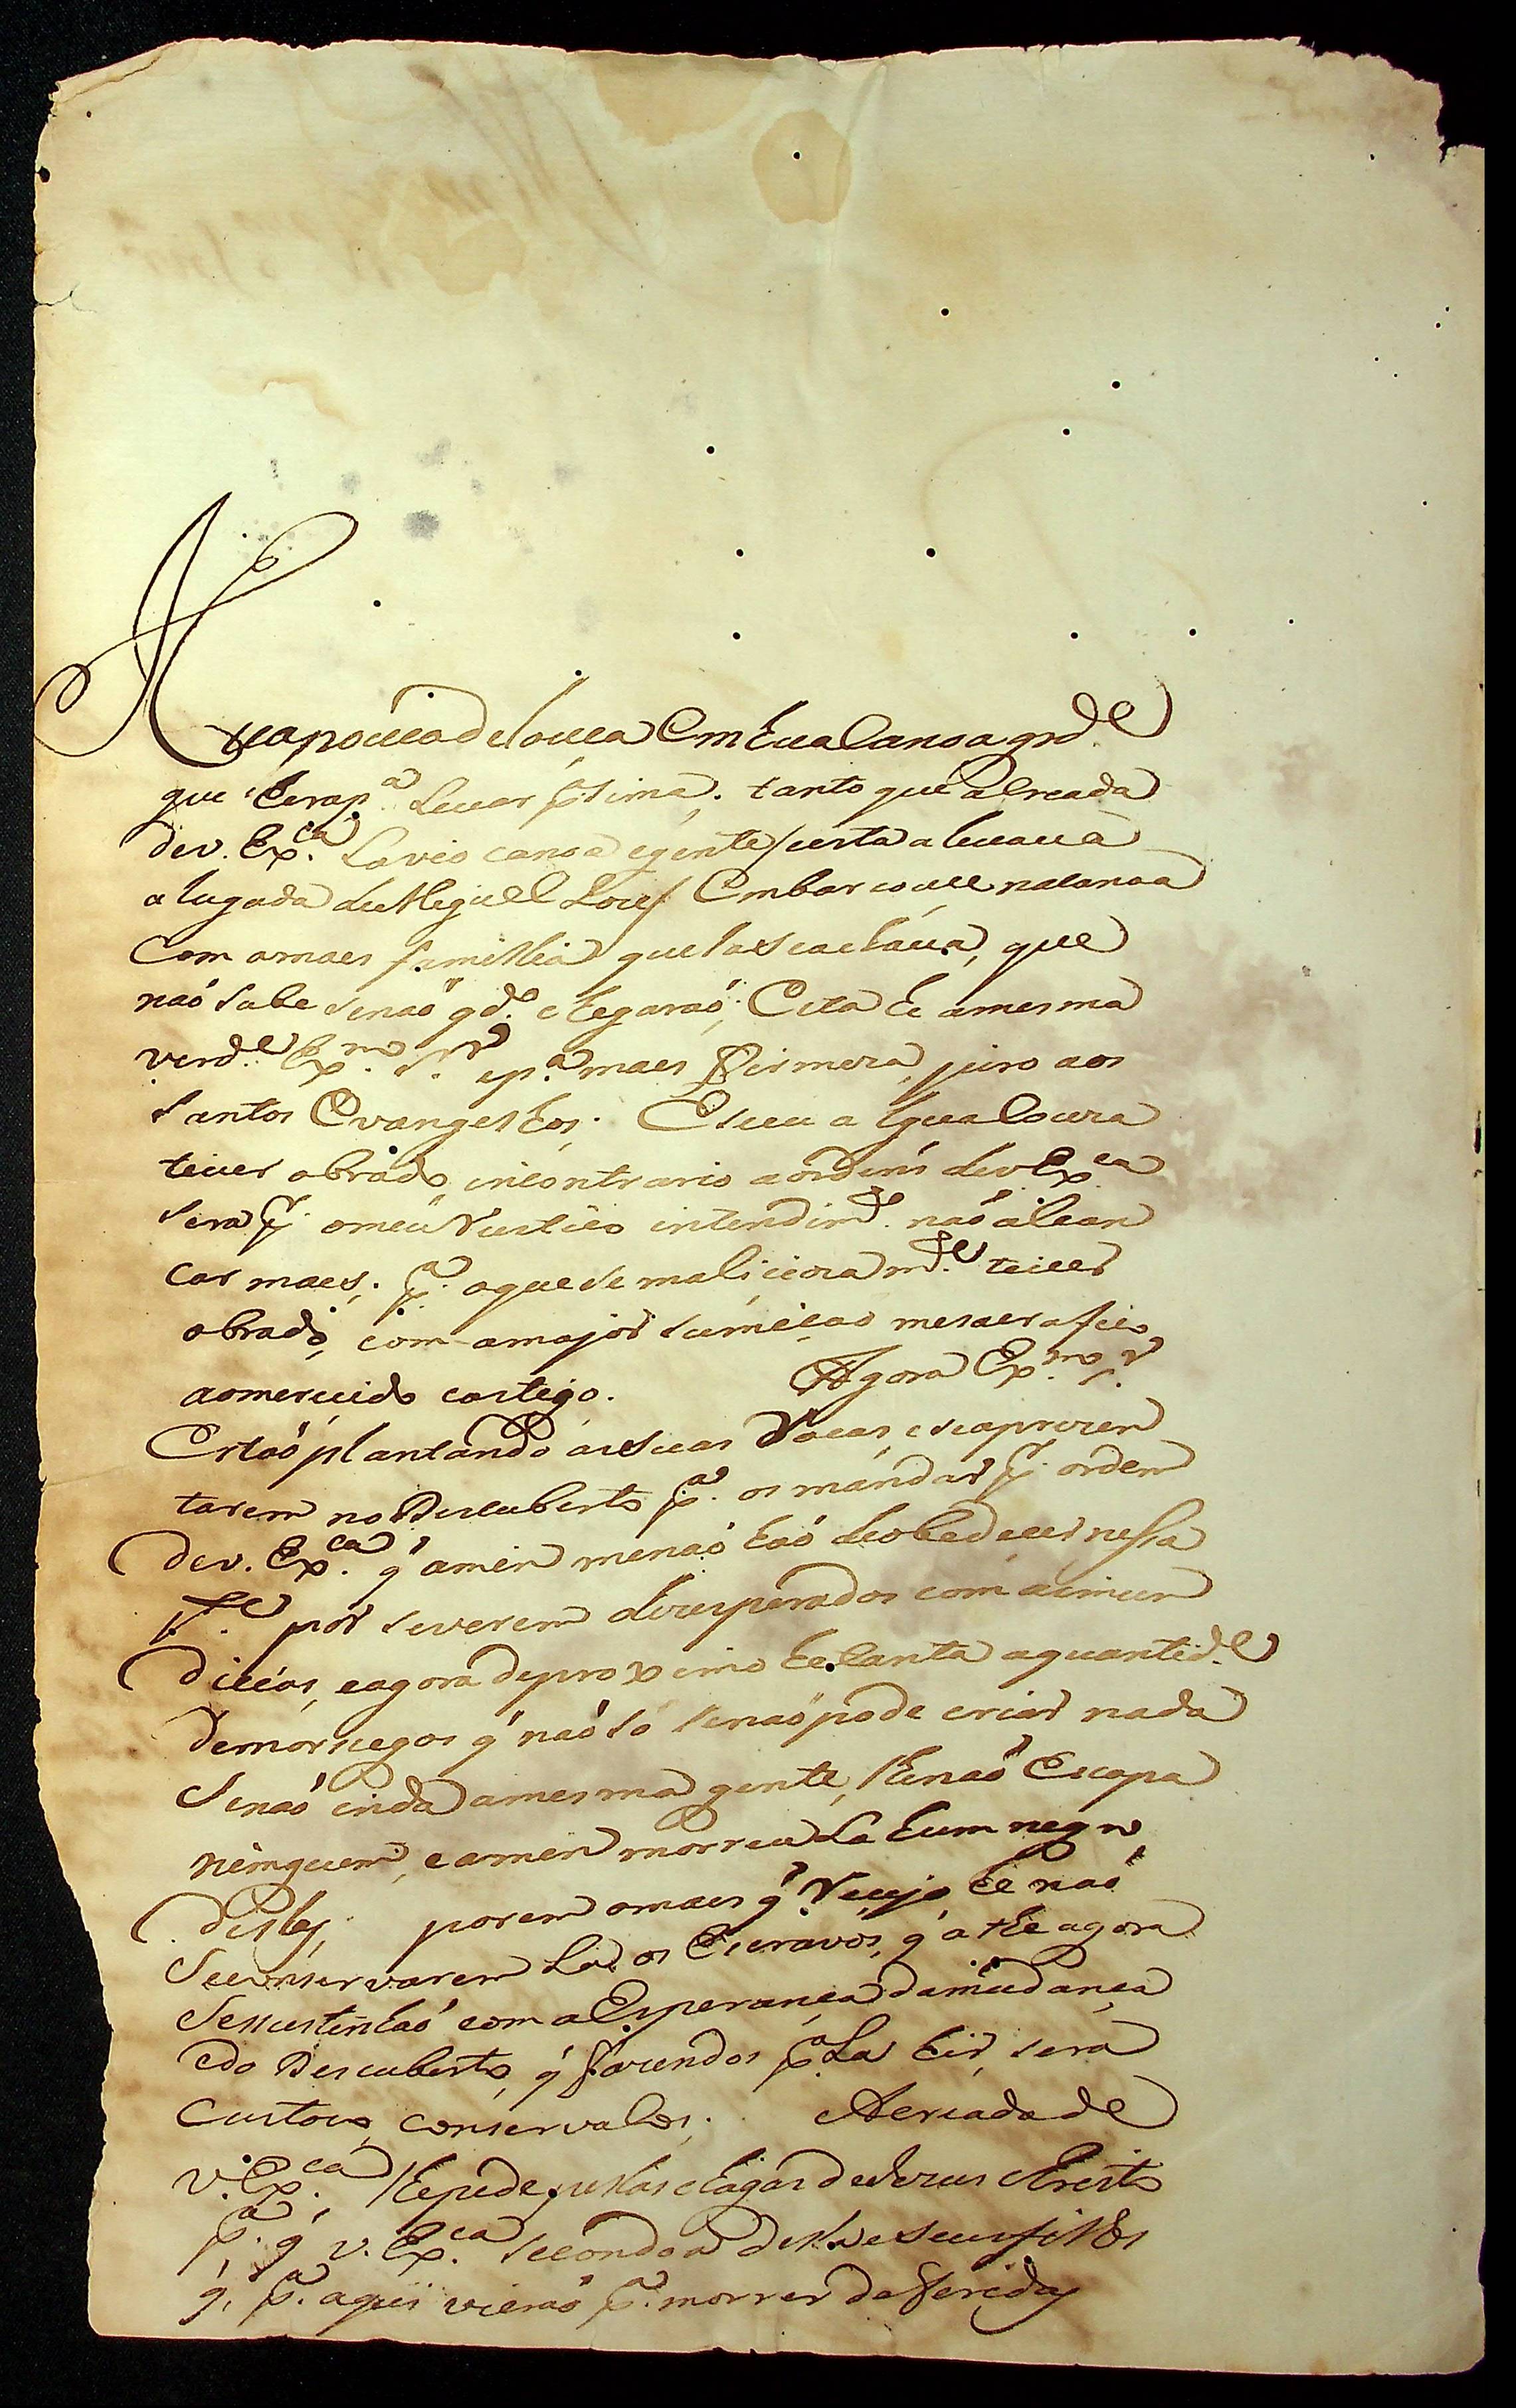 que hera p.ª Levar p.ª Sima, tanto que a Creada
de v. Ex.ca Lá veio canoa e gente
alugada de Meguel Embarcou na Canoa
Com a mais familhia que Lá se achava, que
naõ Sabe Senaõ q.do chegaraõ; Esta he a mesma
verd.e Ex.mo S.r e p.ª mais firmeza, juro aos
Santos Evangelhos. E Se em algua Couza
tiver obrado, in contrario as ordens de v. Ex.ca
Sera p.r o meu Rustico intendim.to naõ alcan
Car mais; p.ª o que Se maliciozam.te tiver
obrado, com a major Sumiçaõ me Sacrafico
ao merecido castigo. Agora Ex.mo S.r
Estaõ plantando as Suas Rocas, e Se aprezen
tarem no Descuberto p.ª os mandar p.r ordem
de v. Ex.ca q a mim me naõ haõ de obedecer nessa
p.te por Se verem dezesperados com as imun
dicias, e agora de proximo he tanta a quantid.e
de morsegos q naõ Só Se naõ pode criar nada
Senaõ inda a mesma gente, Lhe naõ Escapa
ninguem, e a mim morreu Lá hum negro
disto; porem o mais q Vejo, he naõ
Se conservarem Lá os Escravos, q athe agora
Se Sustentaõ com a Esperança da mudança
e do Descuberto, q fazendos p.ª Lá hir, Sera
Custozo conservalos; A Creada de
V. Ex.ca Lhe pede pellas chagas de Jezus Christo
p.ª q v. Ex.ca Se condoa della e Seus filhos
q, p.ª aqui vieraõ p.ª morrer de feridas